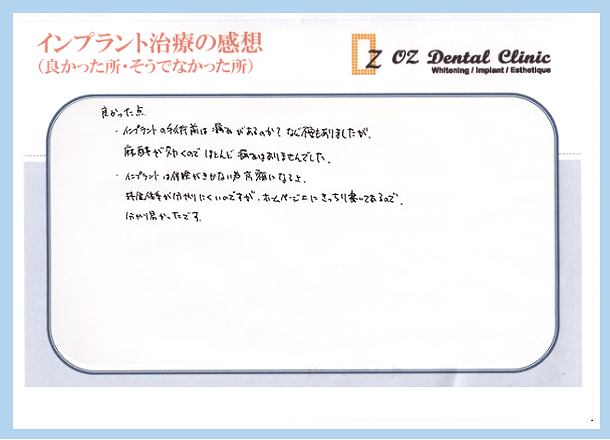 インプラント治療の感想
(良かった所・そうでなかった所)
OZ Dental Clinic
Whitening / Implant / Esthetique
良かった点
・インプラントの手術前は痛みがあるのか?など不安もありましたが、
麻酔が効くのでほとんど痛みはありませんでした。
・インプラントは保険がきかない為高額になるよ、
料金体系が分かりにくいのですが、ホームページ上にきっちり書いてあるので、
分かり易かったです。